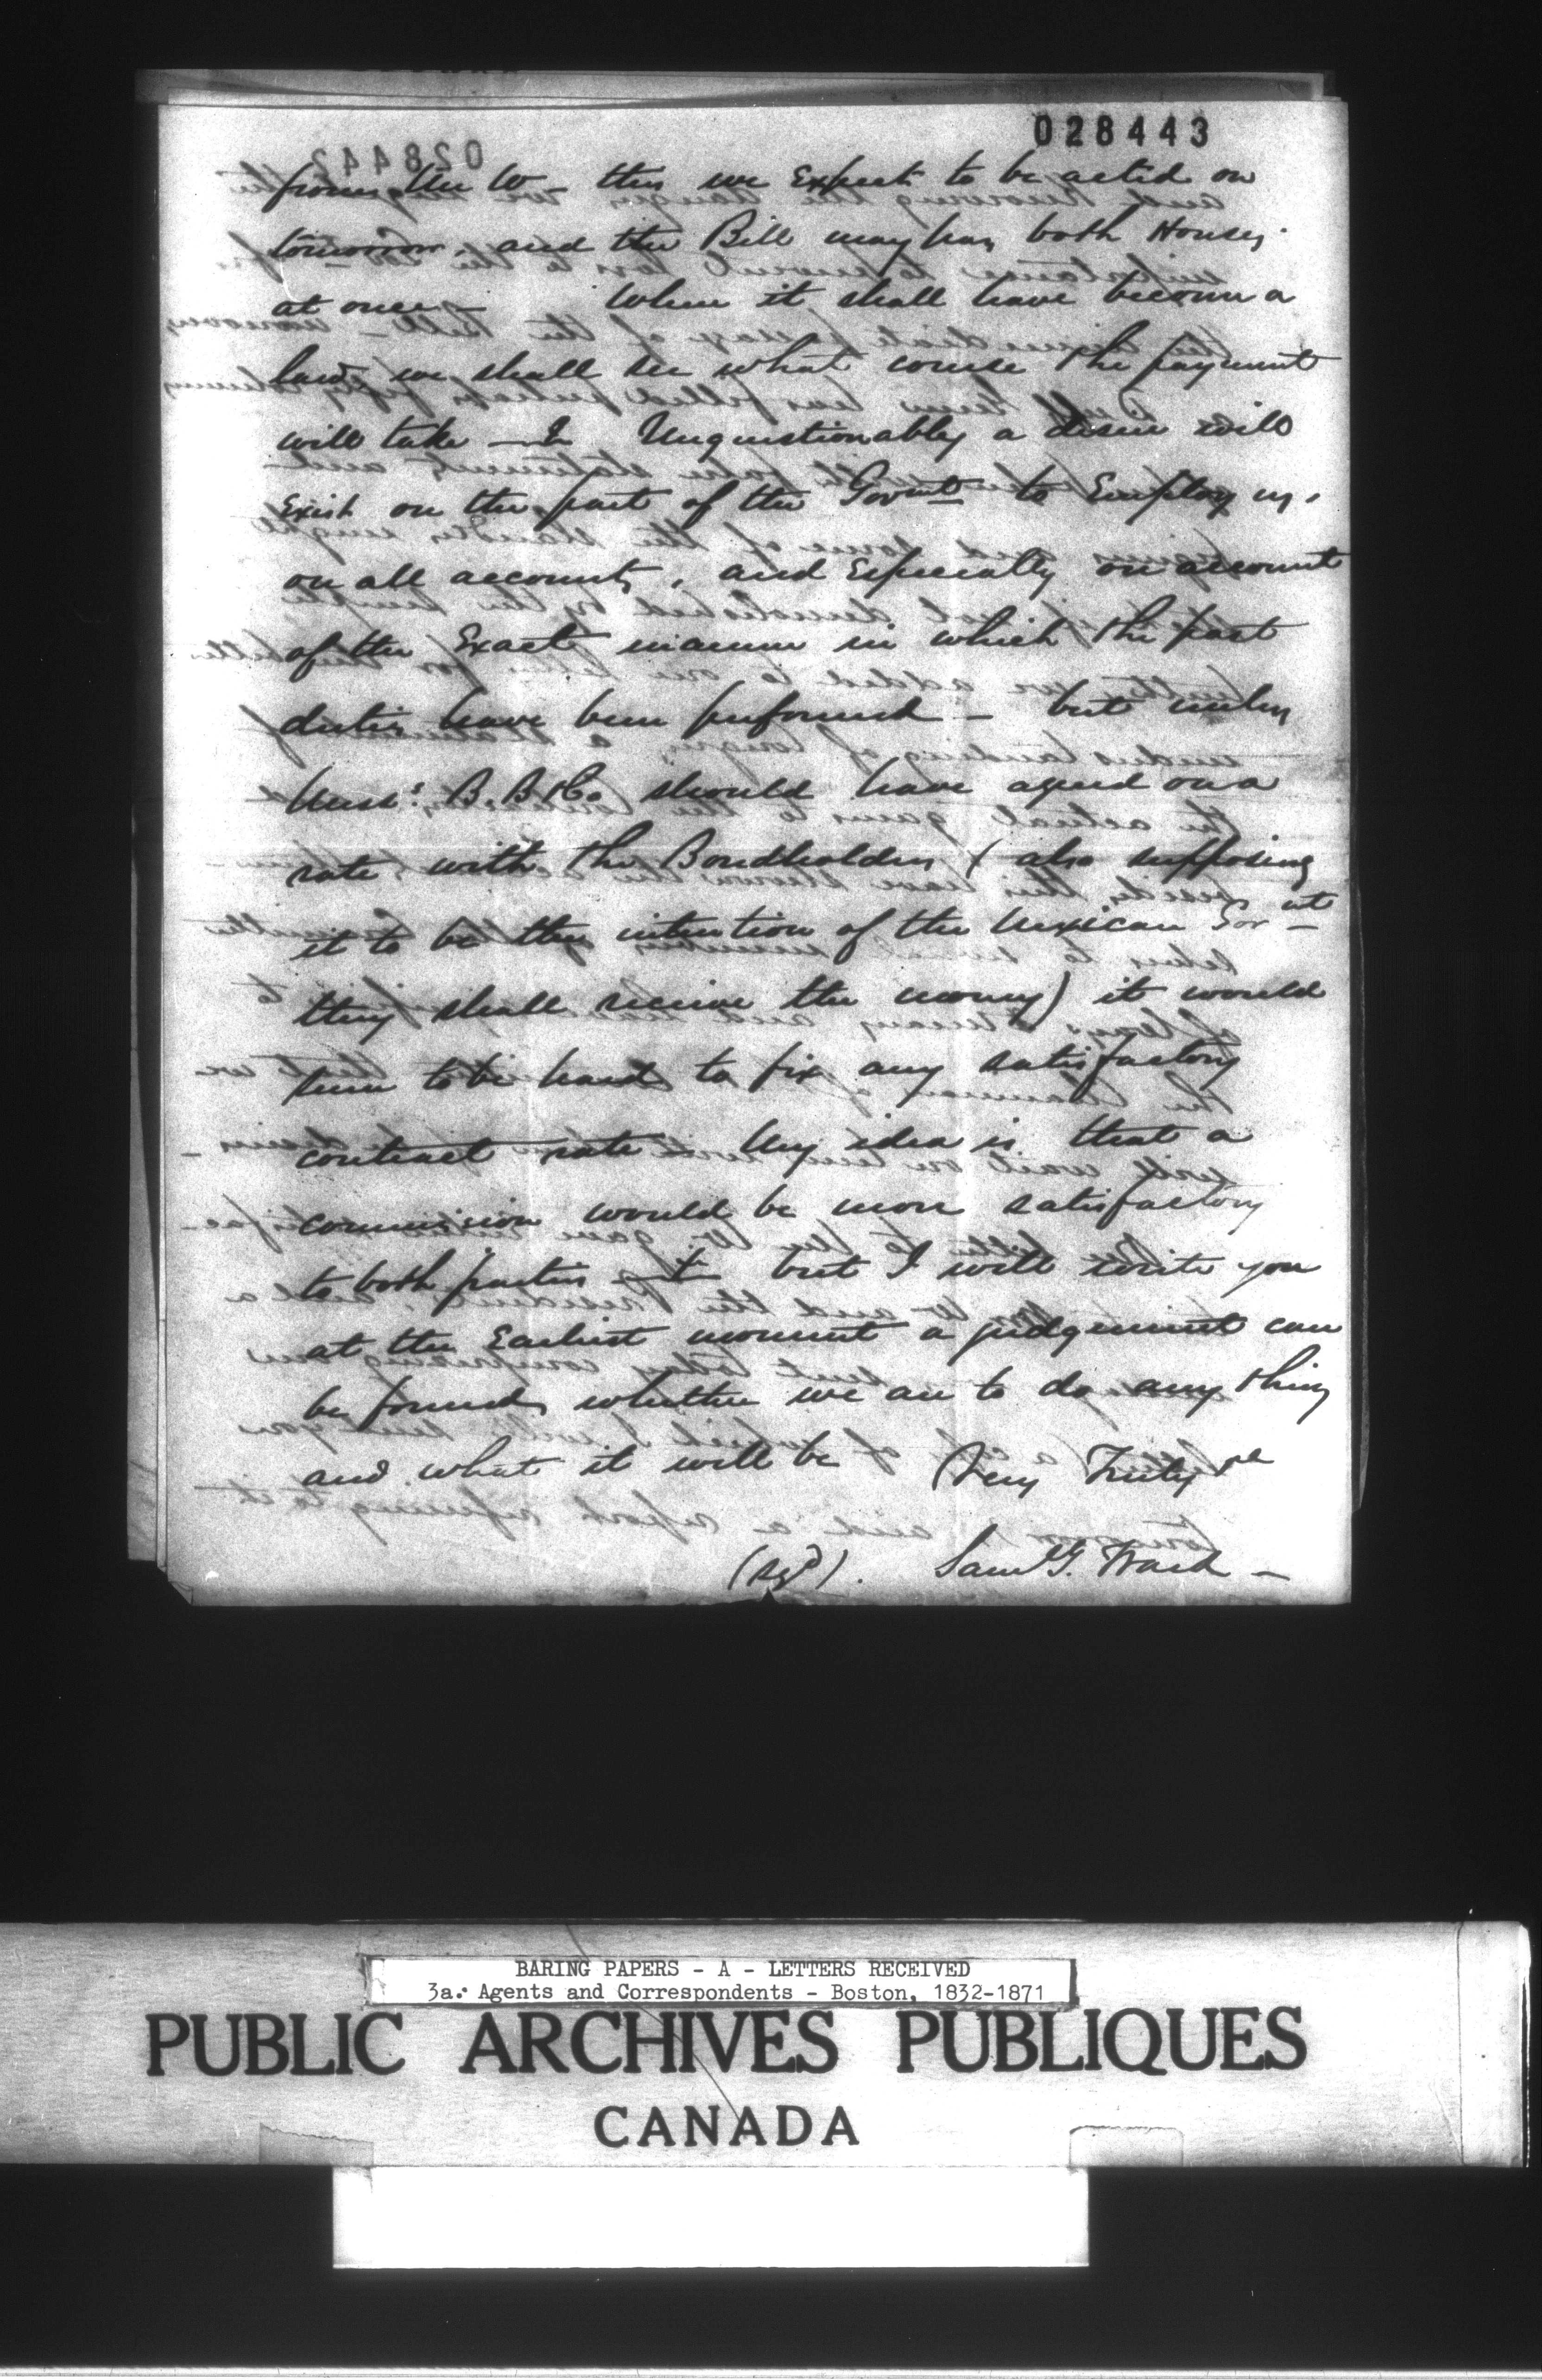 028443
from Mr W— this we Expect to be acted on
tomorrow, and the Bill may pass both Houses
at once — When it shall have become a
law we shall see what course the payment
will take — Unquestionably a desire will
Exist on the part of the Govmt to Employ us,
on all accounts, and Especially on account
of the Exact manner in which the past
duties have been performed — but unless
Messrs B. B & Co should have agreed on a
rate with the Bondholders (also supposing
it to be the intention of the Mexican Govmt
they shall receive the money) it would
seem to be hard to fix any satisfactory
contract rate My idea is that a
commission would be more satisfactory
to both parties — but I will write you
at the Earliest moment a judgement can
be formed, whether we are to do any thing
and what it will be Very Truly
(sgd). Saml G. Ward —
BARING PAPERS - A - LETTERS RECEIVED
3a. Agents and Correspondents - Boston, 1832-1871
PUBLIC ARCHIVES PUBLIQUES
CANADA